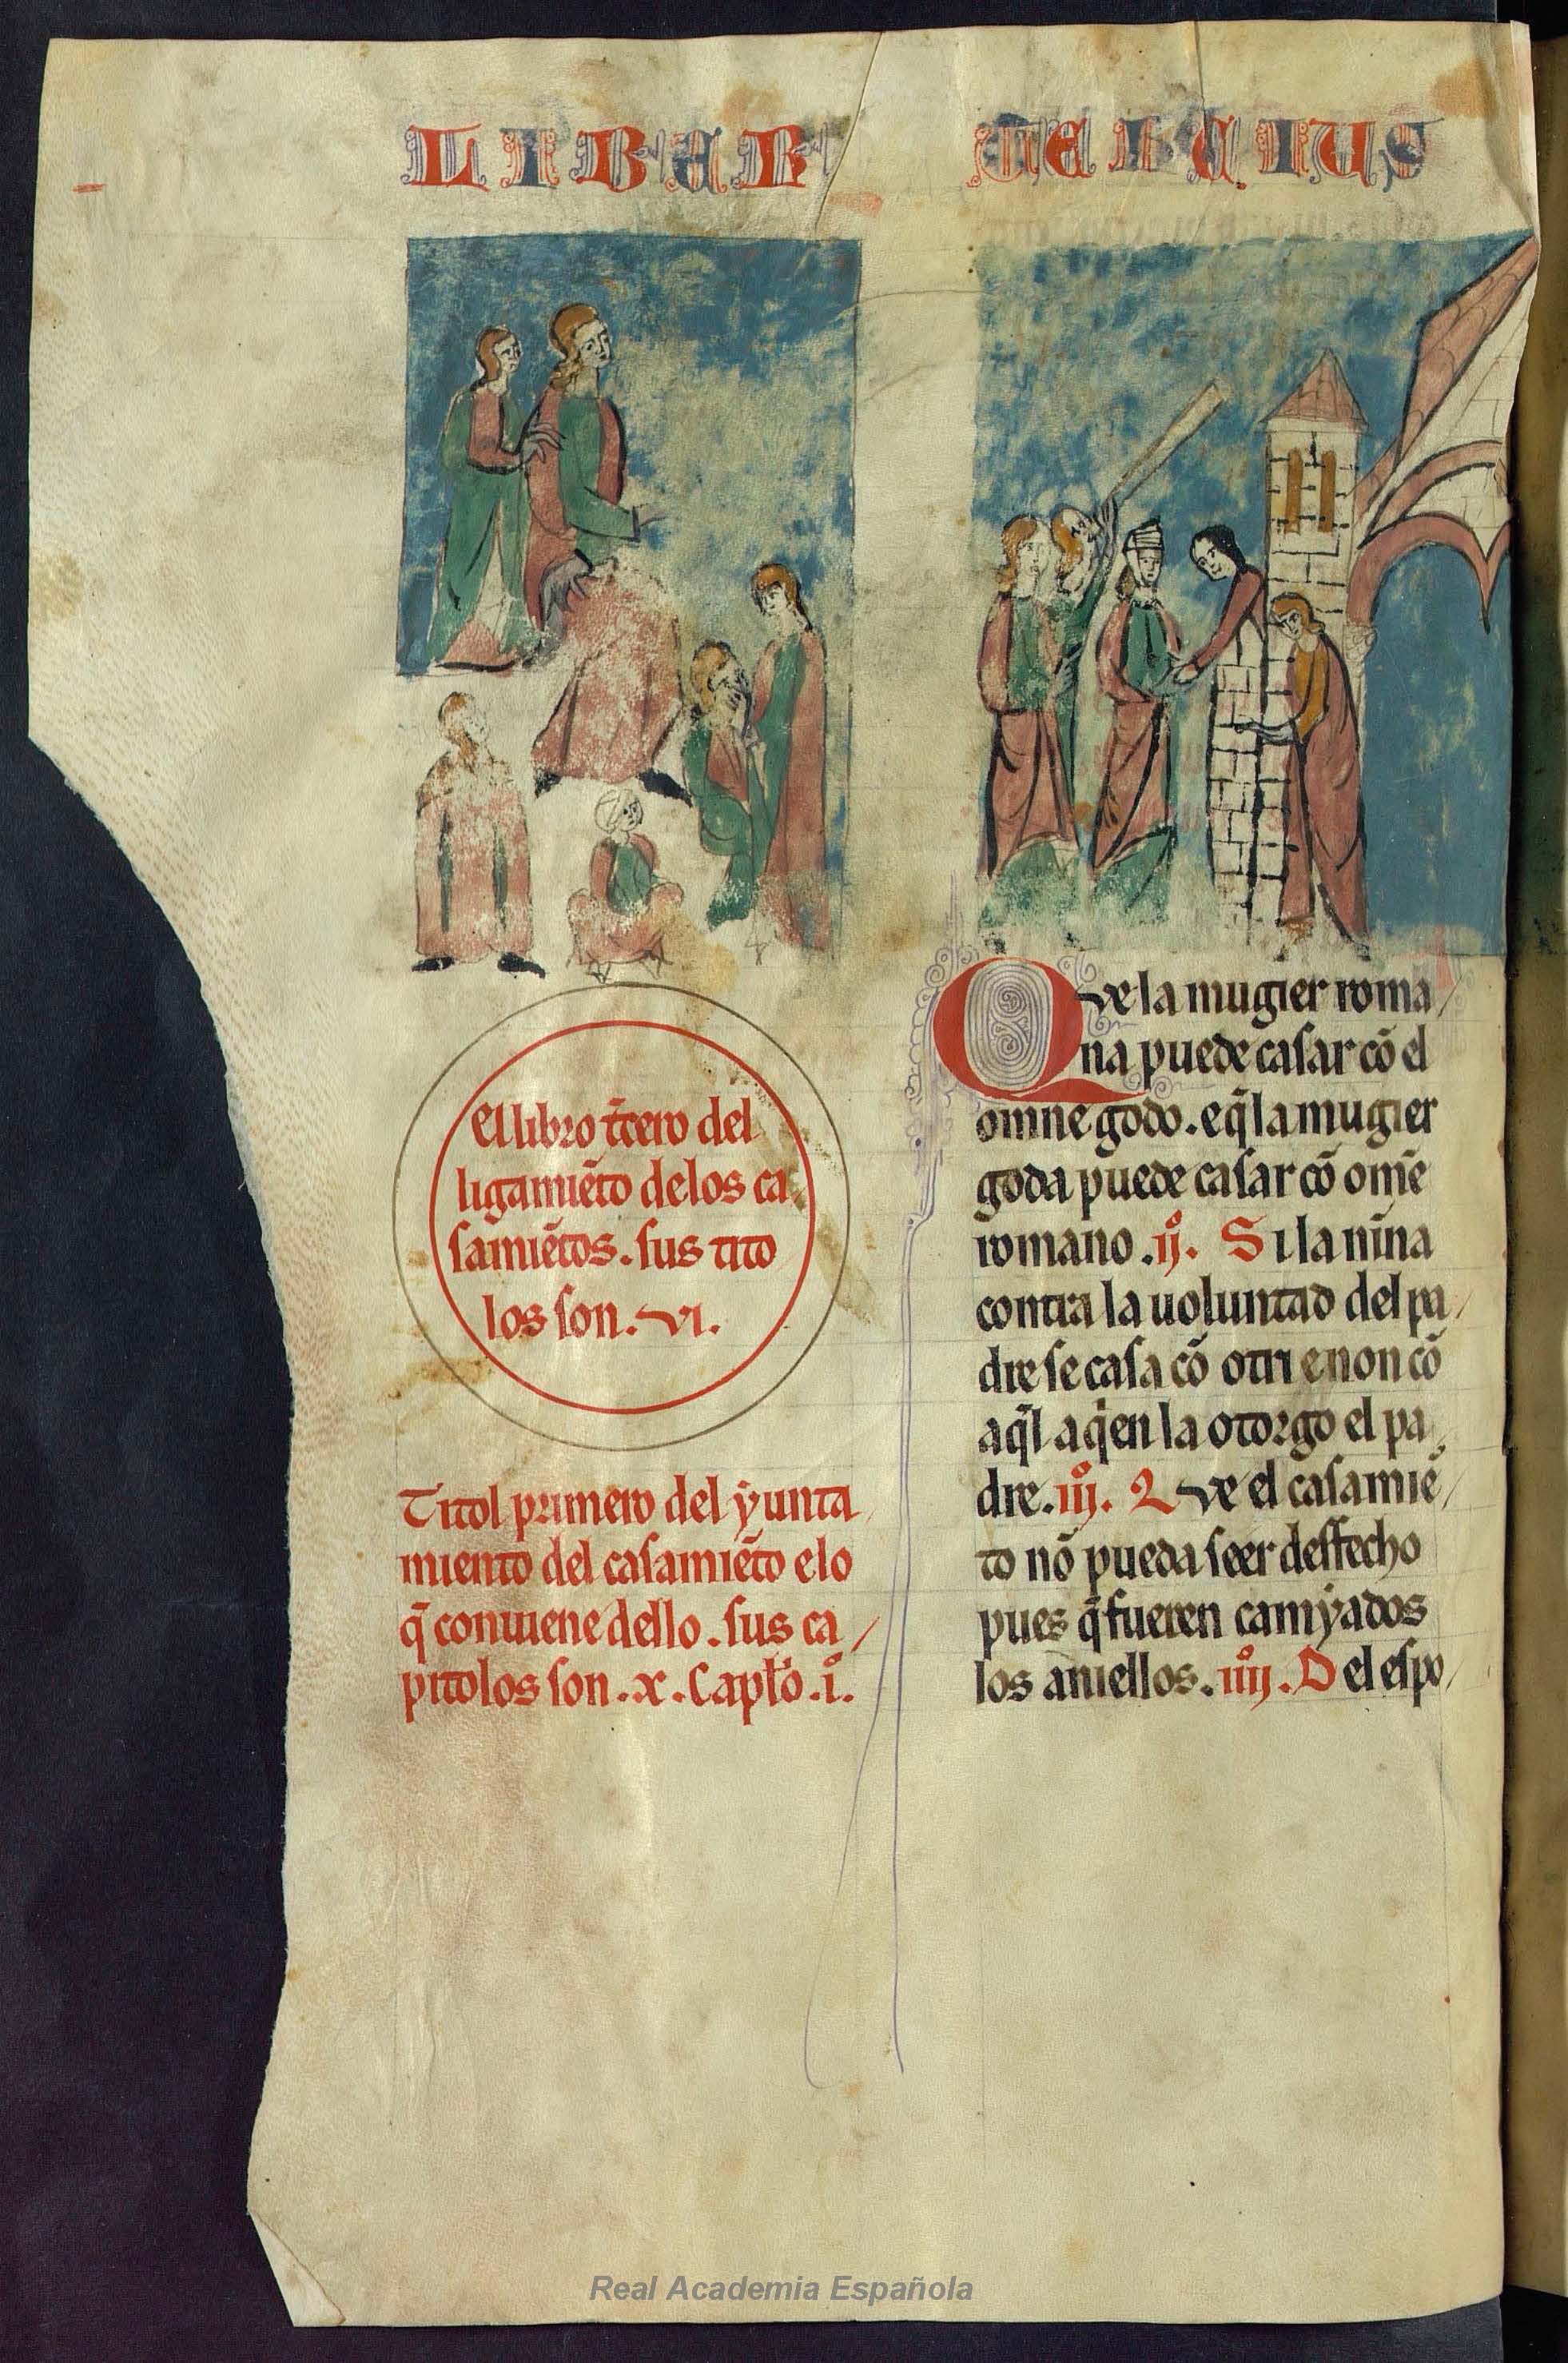 LIBER TERCIUS
El libro t̃cero del
ligamiẽto delos ca
samiẽtos. sus tito
los son. vi.
Titol primero del ẏunta
miento del casamiẽto e lo
q̃ conuiene dello. sus ca /
pitolos son .x. Capłō .i.º
Que la mugier roma /
na puede casar cõ el
omne godo. e q̃ la mugier
goda puede casar cõ om̃e
romano .ij.º Si la nĩna
contra la uoluntad del pa /
dre se casa cõ otri e non cõ
aq̃l aqien la otorgo el pa /
dre. iij.º Que el casamiẽ /
to nõ pueda seer desfecho
pues q̃ fueren camẏados
los aniellos. iiij.º Del espo /
Real Academia Española